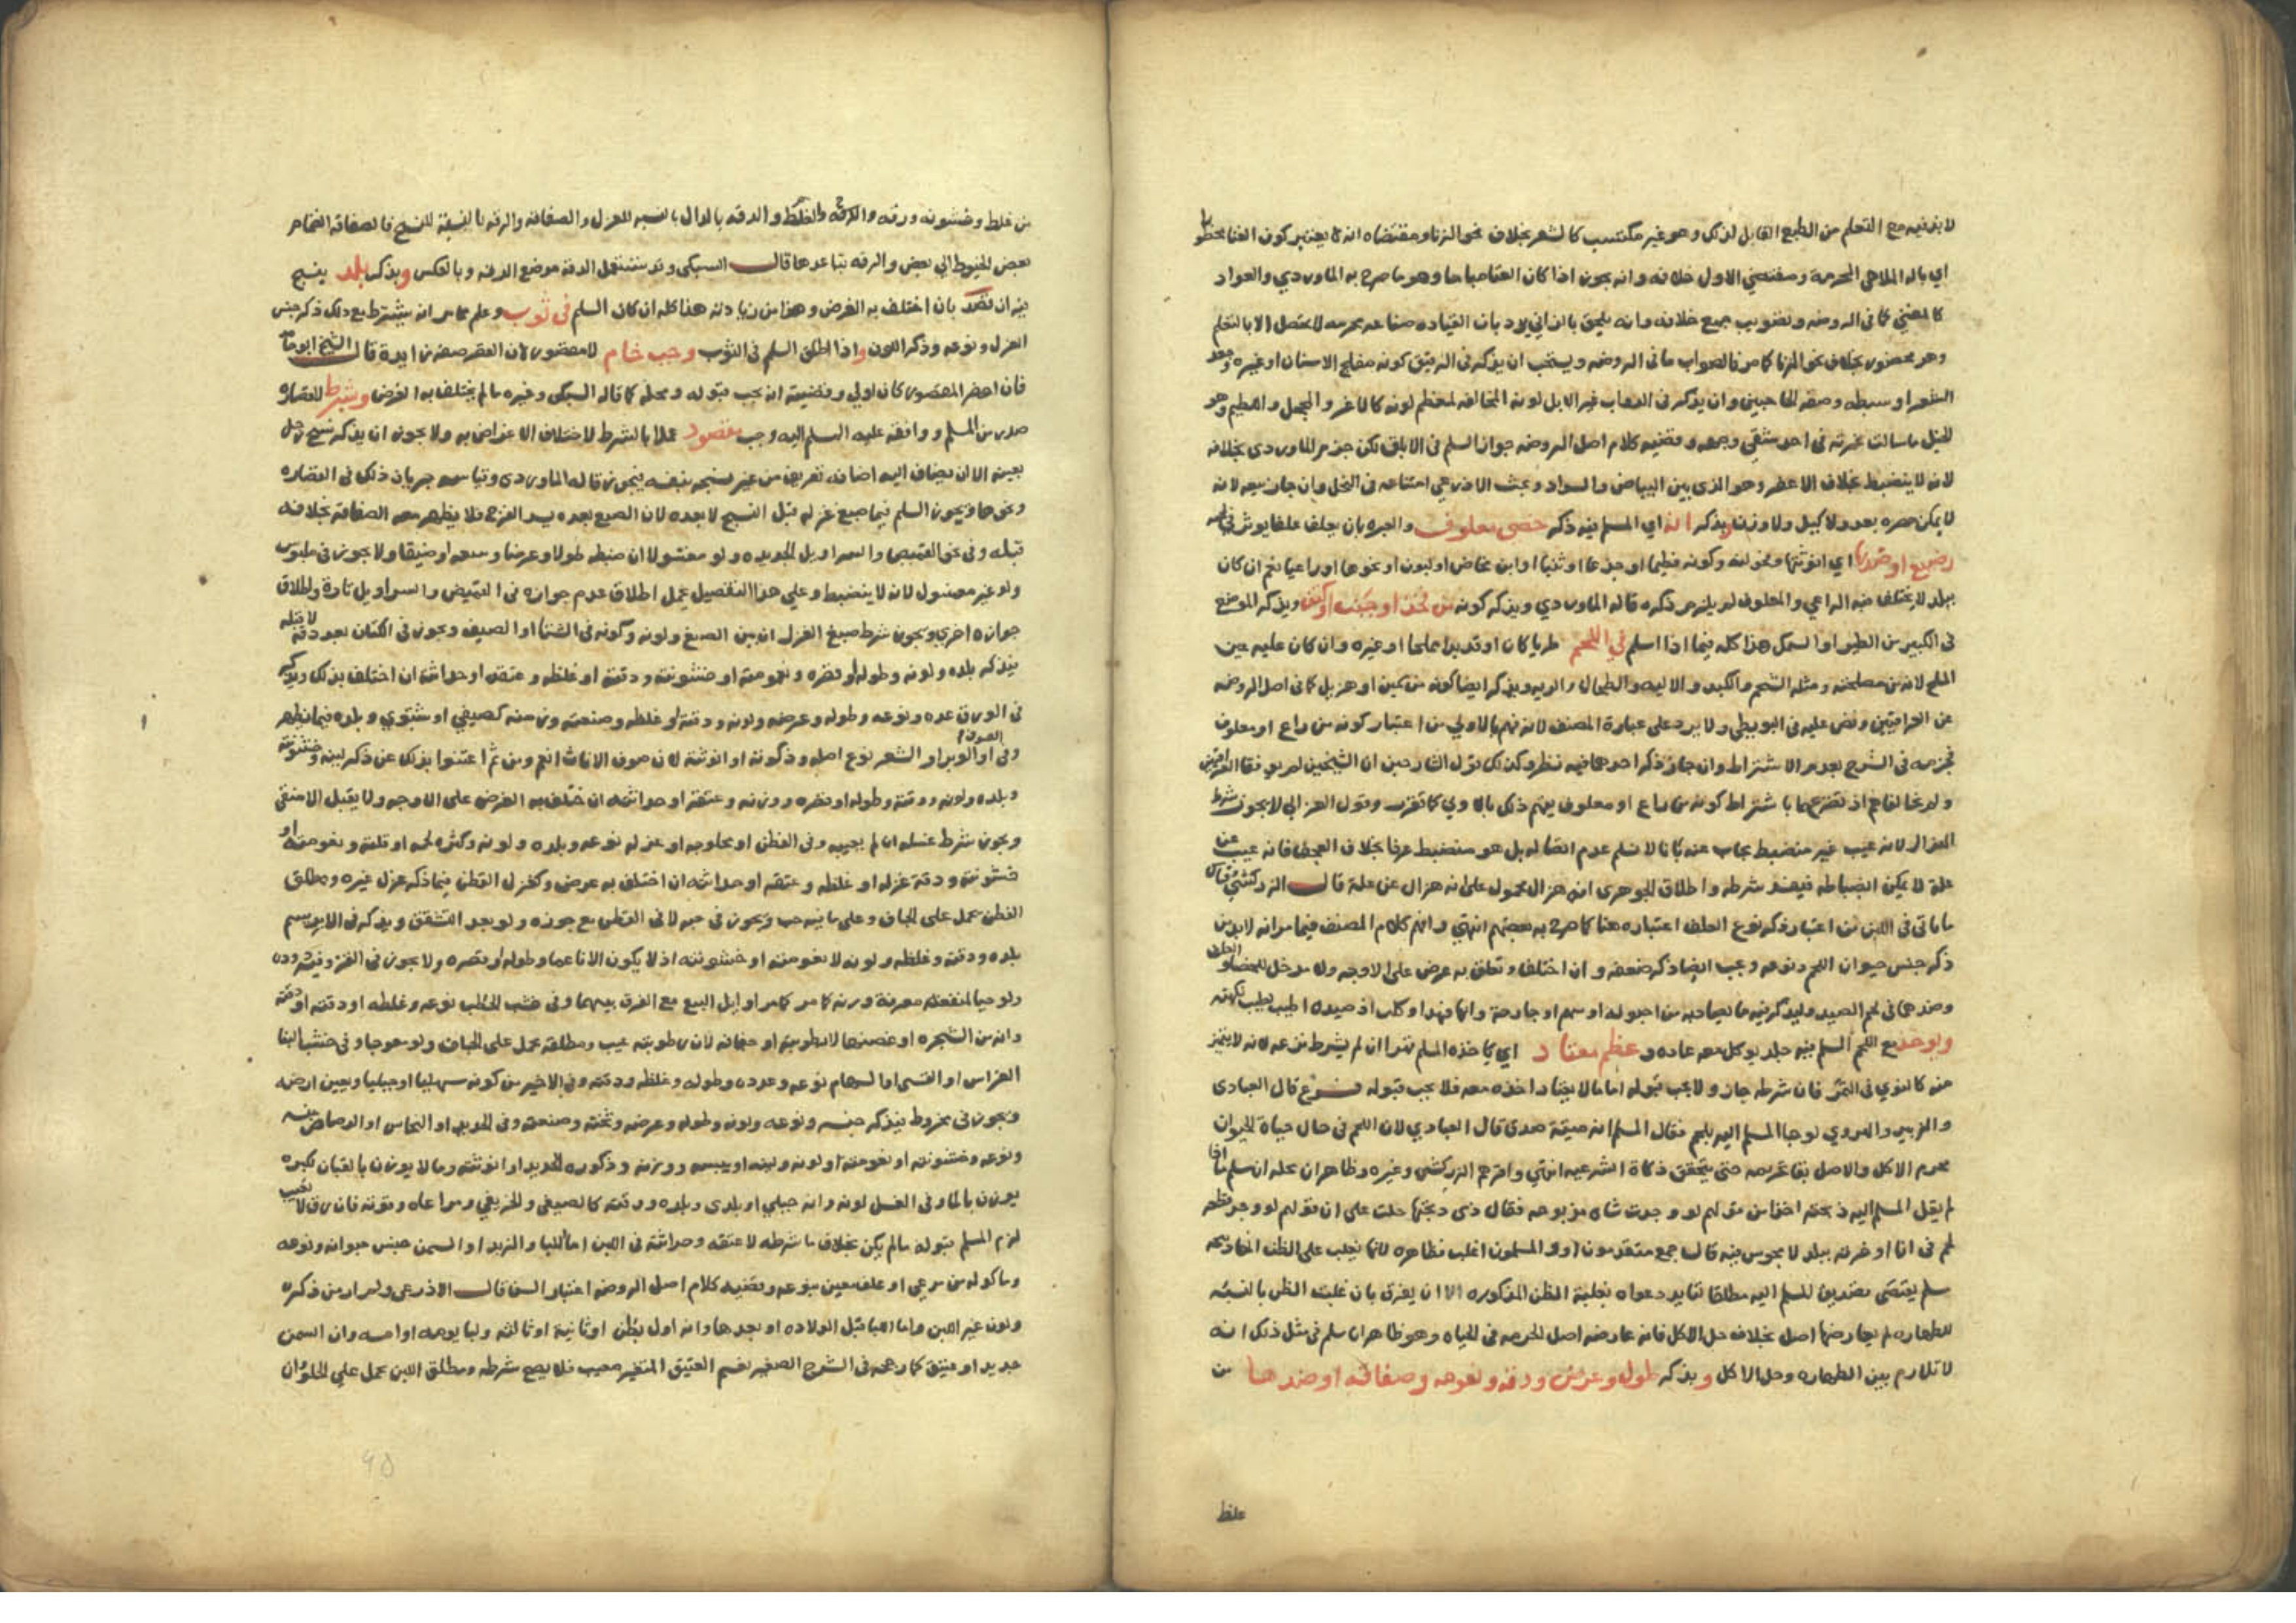 لا بد فيه مع التعلم من الطبع القابل لذلك وهو غير مكتسب كالشعر بخلاف نحو الزنا ومقتضاه انه لا يعتبر كون الغنا محظورا
اي باله الملاهي المحرمة ومقتضي الاول خلافه وانه يجوز اذا كان الغنا مباحا وهو ما صرح به الماوردي والعواد
كالمغني كما في الروضه وتصويب جمع خلافه وانه يلحق بالزاني يرد بان القياده صناعه محرمه لا تحصل الا بالتعلم
وهو محضور بخلاف نحو الزنا كما مر فالصواب ما في الروضه ويستحب ان يذكر في الرقيق كونه مفلج الاسنان او غيره وجعد
الشعر او سبطه وصفه الحاجبين وان يذكر في الدواب غير الابل لونه المخالف لمعظم لونه كالاغر والمحجل واللطيم وهو
من الخيل ما سالت غرته في احد شقي وجهه وقضيه كلام اصل الروضه جواز السلم في الابلق لكن جزم الماوردي بخلافه
لانه لا ينضبط بخلاف الاعفر وهو الذي بين البياض والسواد وبحث الاذرعي امتناعه في النحل وان جاز بيعه لانه
لا يمكن حصره بعدد ولا كيل ولا وزن ويذكر انه اي المسلم فيه ذكر خصي معلوف والعبره بان يعلف علفا يوثر في لحمه
رضيع او ضدها اي انوثتها وفحولته وكونه فطيما او جذعا او ثنيا او ابن مخاض او لبون او نحوها او راعيا نعم ان كان
ببلد لا يختلف فيه الراعي والمعلوف لم يلزم ذكره قاله الماوردي ويذكر كونه من فخذ او جنب او كتف ويذكر الموضع
في الكبير من الطير او السمك هذا كله فيما اذا اسلم في اللحم طريا كان او قديدا مملحا او غيره وان كان عليه عين
الملح لانه من مصلحته ومثله الشحم والكبد والاليه والطحال والريه ويذكر ايضا كونه من سمين او هزيل كما في اصل الروضه
عن العراقيين ونص عليه في البويطي ولا يرد على عبارة المصنف لانه فهم بالاولي من اعتبار كونه من راع او معلوف
فجزمه في الشرح بعدم الاشتراط وان جاز ذكر احدهما فيه نظر وكذلك قول الشارحين ان الشيخين لم يوافقا العراقيين
ولم يخالفاهم اذ تصريحهما باشتراط كونه من راع او معلوف يفهم ذلك بالاولي كما تقرر وقول الغزالي لا يجوز شرط
الهزال لانه عيب غير منضبط يجاب عنه بانا لا نسلم عدم انضباطه بل هو منضبط عرفا بخلاف العجف فانه عيب عن
علة لا يمكن انضباطه فيفسد شرطه واطلاق الجوهري انه هزال محمول على انه هزال عن علة قال الزركشي وقياس
ما ياتي في اللبن من اعتبار ذكر نوع العلف اعتباره هنا كما صرح به بعضهم انتهي وافهم كلام المصنف فيما مر انه لا بد من
ذكر جنس حيوان اللحم ونوعه ويجب ايضا ذكر صفته وان اختلف وتعلق به غرض على الاوجه ولا مدخل للخصا والعلف
وضدهما في لحم الصيد وليذكر فيه ما يصاد به من احبولة او سهم او جارحة وانها فهد او كلب اذ صيده اطيب لطيب نكهته
ويوخذ مع اللحم المسلم فيه جلد يوكل معه عاده وعظم معتاد اي ياخذه المسلم قهرا ان لم يشرط نزعه لانه لا يتميز
عنه كالنوي في التمر فان شرطه جاز ولا يجب قبوله اما ما لا يعتاد اخذه معه فلا يجب قبوله فرع قال العبادي
والزبيري والهروي لو جا المسلم اليه بلحم فقال المسلم انه ميتة صدق قال العبادي لان اللحم في حال حياة الحيوان
محرم الاكل والاصل بقا تحريمه حتى يتحقق ذكاة الشرعيه انتهي واقرهم الزركشي وغيره وظاهر ان محله ان سلم ما
لم يقل المسلم اليه ذبحته اخذا من قولهم لو وجدت شاه مذبوحه فقال ذمي ذبحتها حلت على ان قولهم لو وجد قطعه
لحم في انا او خرقه ببلد لا مجوس فيه قال جمع متقدمون او والمسلمون اغلب فطاهره لانه يغلب على الظن انها ذبيحه
مسلم يقتضي تصديق المسلم اليه مطلقا لتايد دعواه بغلبة الظن المذكوره الا ان يفرق بان غلبة الظن بالنسبه
للطهاره لم يعارضها اصل بخلاف حل الاكل فانه عارضه اصل الحرمه في الحياه وهو ظاهر ان سلم في مثل ذلك انه
لا تلازم بين الطهاره وحل الاكل ويذكر طول وعرض ودقه ونعومه وصفاقه او ضدها من
غلظ
من غلظ وخشونه ورقه والدقه والغلظ والدقه بالدال بالنسبه للغزل والصفاقه والرقه بالنسبة للنسج فالصفاقه انضمام
بعض الخيوط الي بعض والرقه تباعدها قال السبكي وقد تستعمل الدقه موضع الرقه وبالعكس ويذكر بلد ينسج
فيه ان قصد بان اختلف به الغرض وهذا من زيادته هذا كله ان كان السلم في ثوب وعلم مما مر انه يشترط مع ذلك ذكر جنس
الغزل ونوعه وذكر اللون واذا اطلق السلم في الثوب وجب خام لا مقصور لان القصر صفه زايدة قال الشيخ ابو حامد
فان احضر المقصور كان اولي وقضيته انه يجب قبوله ومحله كما قاله السبكي وغيره ما لم يختلف به الغرض وشرط للقصاره
صدر من المسلم ووافقه عليه المسلم اليه وجب مقصود عملا بالشرط لاختلاف الاغراض به ولا يجوز ان يذكر نسج رجل
بعينه الا ان يضاف اليه اضافه تعريف من غير نسجه بنفسه فيجوز قاله الماوردي وقياسه جريان ذلك في القصاره
ونحوها ويجوز السلم فيما صبغ غزله قبل النسج لا بعده لان الصبغ بعده يسد الفرج فلا يظهر معه الصفاقة بخلافه
قبله وفي نحو القميص والسراويل الجديده ولو مغسولا ان ضبطه طولا وعرضا وسعه او ضيقا ولا يجوز في ملبوس
ولو غير مغسول لانه لا ينضبط وعلي هذا التفصيل يحمل اطلاق عدم جوازه في القميص والسراويل تارة واطلاق
جوازه اخري ويجوز شرط صبغ الغزل ان بين الصبغ ولونه وكونه في الشتا او الصيف ويجوز في الكتان بعد دقه لا قبله
فيذكر بلده ولونه وطوله او قصره ونعومته او خشونته ودقته او غلظه وعتقه او حداثته ان اختلف بذلك ويذكر
في الورق عدده ونوعه وطوله وعرضه ولونه ودقته او غلظه وصنعته وزمنه كصيفي او شتوي وبلده فيما يظهر
وفي الصوف او الوبر او الشعر نوع اصله وذكورته او انوثته لان صوف الاناث انعم ومن ثم اغتنوا بذلك عن ذكر لينه وخشونته
وبلده ولونه ووقته وطوله او قصره ووزنه وعتقه او حداثته ان اختلف به الغرض على الاوجه ولا يقبل الا منقي
ويجوز شرط غسله ان لم يعيبه وفي القطن او محلوجه او غزله نوعه وبلده ولونه وكثرة لحمه او قلته ونعومته او
خشونته ودقة غزله او غلظه وعتقه او حداثته ان اختلف به غرض وكغزل القطن فيما ذكر غزل غيره ومطلق
القطن يحمل على الجاف وعلى ما فيه حب ويجوز في حبه لا في القطن مع جوزه ولو بعد التشقق ويذكر في الابريسم
بلده ودقته وغلظه ولونه لا نعومته او خشونته اذ لا يكون الا ناعما وطوله او قصره ولا يجوز في القز وفيه دوده
ولو حيا لمنعه معرفة وزنه كما مر اوايل البيع مع الفرق بينهما وفي خشب الحطب نوعه وغلظه او دقته
وانه من الشجره او غصنها لا رطوبته او جفافه لان رطوبته عيب ومطلقه يحمل على الجاف ولو معوجا وفي خشب البنا
الغراس او القسي او السهام نوعه وعدده وطوله وغلظه ودقته وفي الاخير من كونه سهليا او جبليا وبعين ارضه
ويجوز في مخروط فيذكر جنسه ونوعه ولونه وطوله وعرضه وثخنه وصنعته وفي الحديد او النحاس او الرصاص جنسه
ونوعه وخشونته او نعومته او لونه ولينه او يبسه ووزنه وذكوره الحديد او انوثته وما لا يوزن بالقبان لكبره
يوزن بالما وفي العسل لونه وانه جبلي او بلدي وبلده ووقته كالصيفي والخريفي ومرعاه وقوته فان رق لا لعيب
لزم المسلم قبوله ما لم يكن بخلاف ما شرطه لا عتقه وحداثته في اللبن اما اللبا والزبد او السمن جنس حيوانه ونوعه
وما كوله من مرعي او علف معين بنوعه وقضيه كلام اصل الروضه اعتبار السن قال الاذرعي ولم ار من ذكره
ولون غير اللبن واما اللبا قبل الولاده او بعدها وانه اول بطن او ثانيه او ثالثه ولبا يومه او امسه وان السمن
جديد او عتيق كما رجحه في الشرح الصغير نعم العتيق المتغير معيب فلا يصح شرطه ومطلق اللبن يحمل علي الحلو وان
95